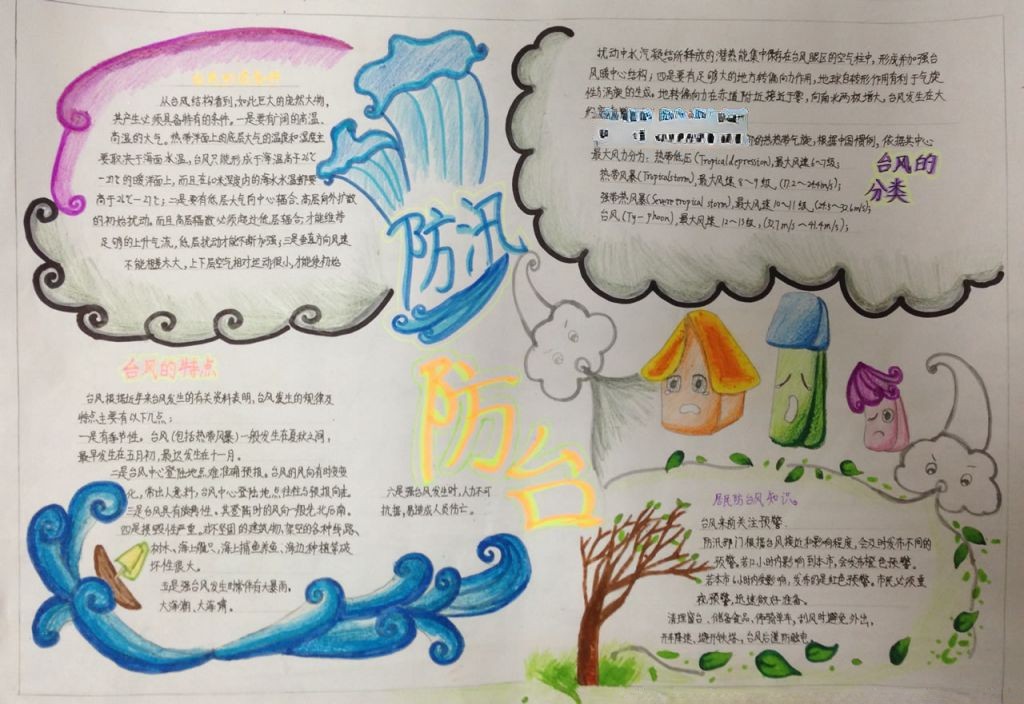 从台风结构看到,如此巨大的庞然大物,
其产生必须具备特有的条件。一是要有广阔的高温、
高湿的大气。热带洋面上的底层大气的温度和湿度主
要取决于海面水温,台风只能形成于海温高于26℃
-27℃的暖洋面上,而且在60米深度内的海水水温都要
高于26℃~27℃;二是要有低层大气向中心辐合、高层向外扩散
的初始扰动。而且高层辐散必须超过低层辐合,才能维持
足够的上升气流,低层扰动才能不断加强;三是垂直方向风速
不能相差太大,上下层空气相对运动很小,才能使初始
防汛
扰动中水汽凝结所释放的潜热能集中保存在台风眼区的空气柱中,形成并加强台
风暖中心结构;四是要有足够大的地方转偏向力作用,地球自转形作用有利于气旋
性与涡旋的生成。地转偏向力在赤道附近接近于零,向南北两极增大,台风发生在大
的热热带气旋,根据中国惯例,依据其中心
最大风力分为:热带低压(Tropical depression),最大风速6~7级;
热带风暴(Tropical storm),最大风速8~9级,(17.2~24.4m/s);
强热带风暴(Severe tropical storm),最大风速10~11级,(24.5~32.6m/s);
台风(Ty-phoon),最大风速12~13级,(32.7m/s~41.4m/s);
台风的
分类
防台
台风的特点
台风根据近年来台风发生的有关资料表明,台风发生的规律及
特点主要有以下几点:
一是有季节性。台风(包括热带风暴)一般发生在夏秋之间,
最早发生在五月初,最迟发生在十一月。
二是台风中心登陆地点难准确预报。台风的风向有时
化,常出人意料,台风中心登陆地点往往与预报向左。
三是台风具有旋转性。其登陆时的风向一般先北后南。
四是损毁性严重。对不坚固的建筑物、架空的各种线路、
树木、海上船只,海上捕鱼养鱼、海边种植等破
坏性很大。
五是强台风发生时常伴有大暴雨、
大海潮、大海啸。
六是强台风发生时,人力不可
抗拒,易造成人员伤亡。
居民防台风知识。
台风来前关注预警
防汛部门根据台风接近和影响程度,会及时发布不同的
预警。若12小时内影响到本市,会发布橙色预警。
若本市6小时内受影响,发布的是红色预警。市民必须重
视预警,迅速做好准备。
清理窗台、储备食品、停骑单车,刮风时避免外出,